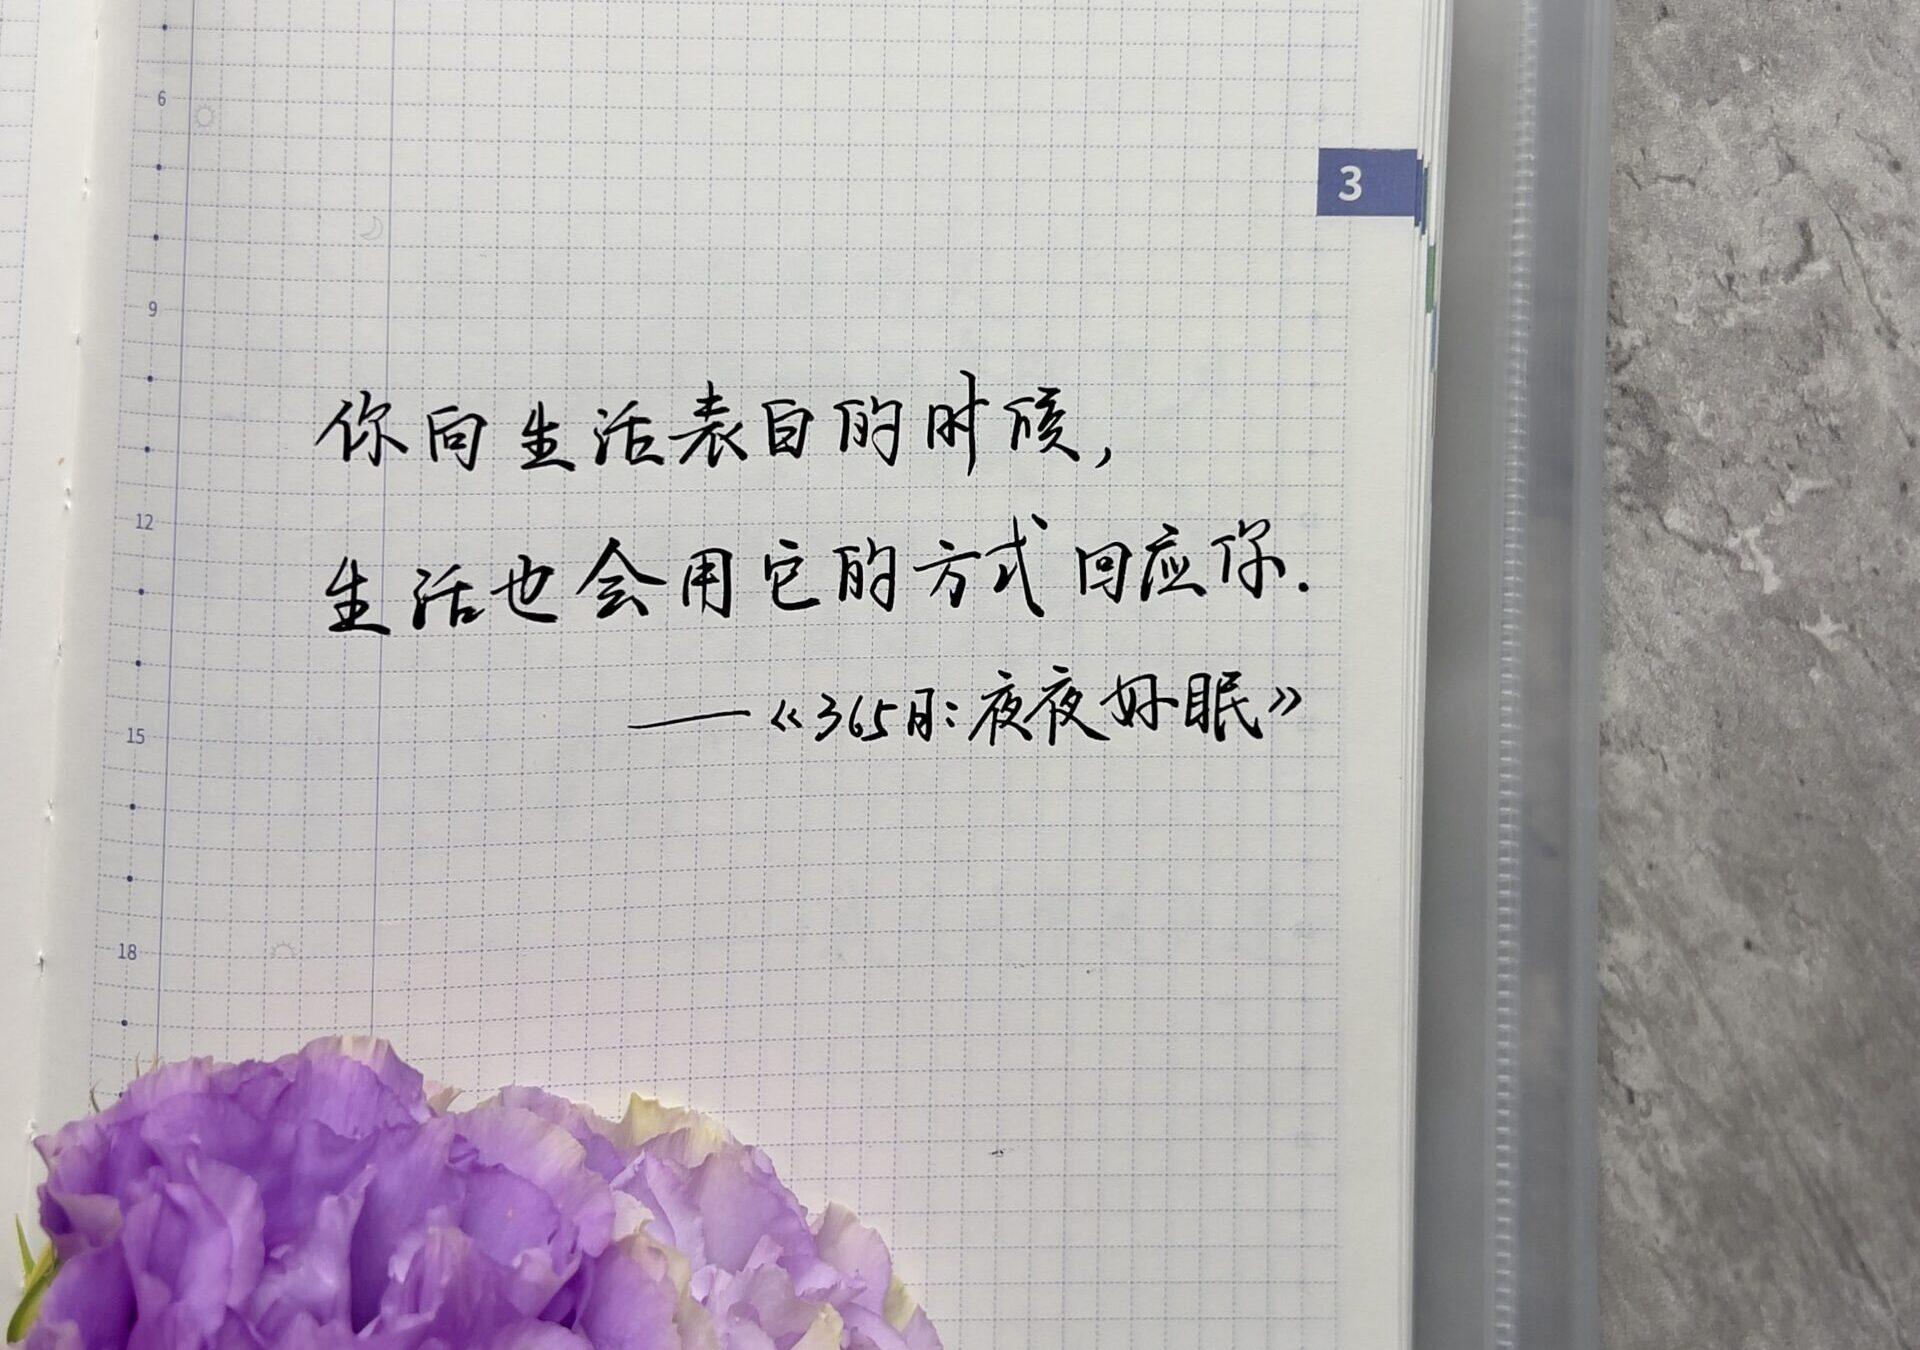 6
3
9
你向生活表白的时候,
12
生活也会用它的方式回应你.
——《365日:夜夜好眠》
15
18